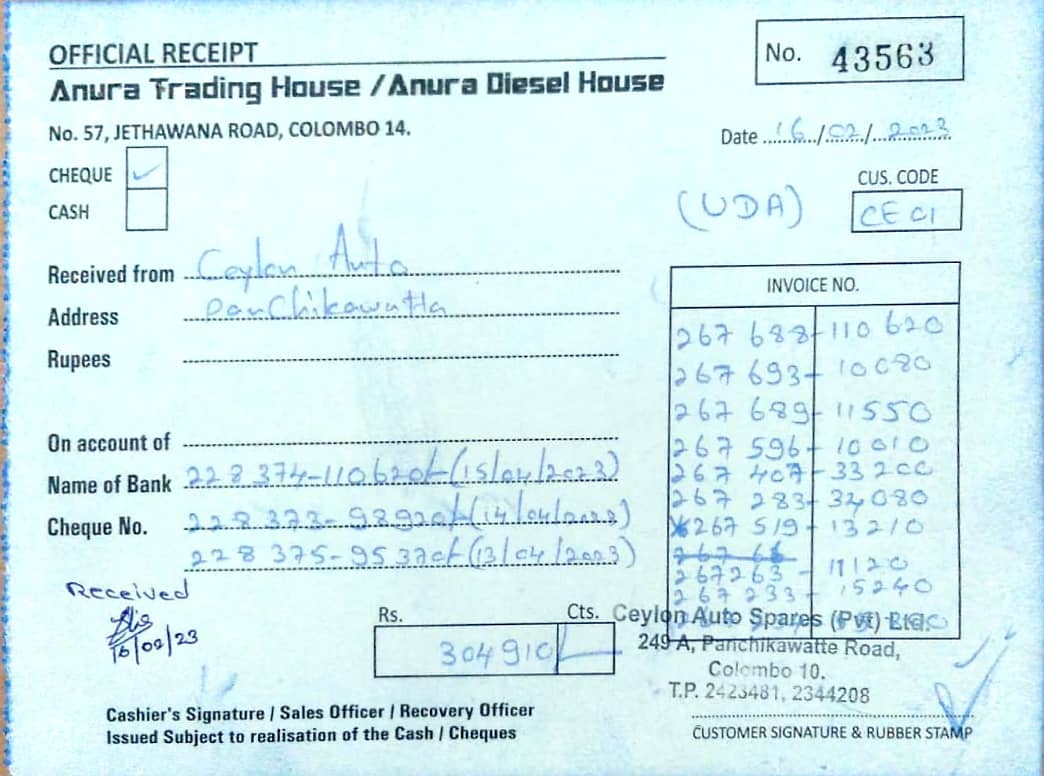 OFFICIAL RECEIPT
No. 43563
Anura Trading House / Anura Diesel House
No. 57, JETHAWANA ROAD, COLOMBO 14.
Date 16/02/2023
CHEQUE ✓
CUS. CODE
CASH
(UDA) CE 01
Received from Ceylon Auto
INVOICE NO.
Address PanChikawatta
Rupees
267 688-110 620
267 693-10080
267 689-11550
On account of
267 596-10010
Name of Bank 228 374-110620/-(15/04/2023)
267 407-33200
267 283-34080
Cheque No. 228 373-98920/-(14/04/2023)
267 519-13210
228 375-95370/-(13/04/2023)
267263-11120
267 233-15240
Received
16/02/23
Rs. Cts.
304910
Ceylon Auto Spares (Pvt) Ltd.
249 A, Panchikawatte Road,
Colombo 10.
T.P. 2423481, 2344208
Cashier's Signature / Sales Officer / Recovery Officer
Issued Subject to realisation of the Cash / Cheques
CUSTOMER SIGNATURE & RUBBER STAMP